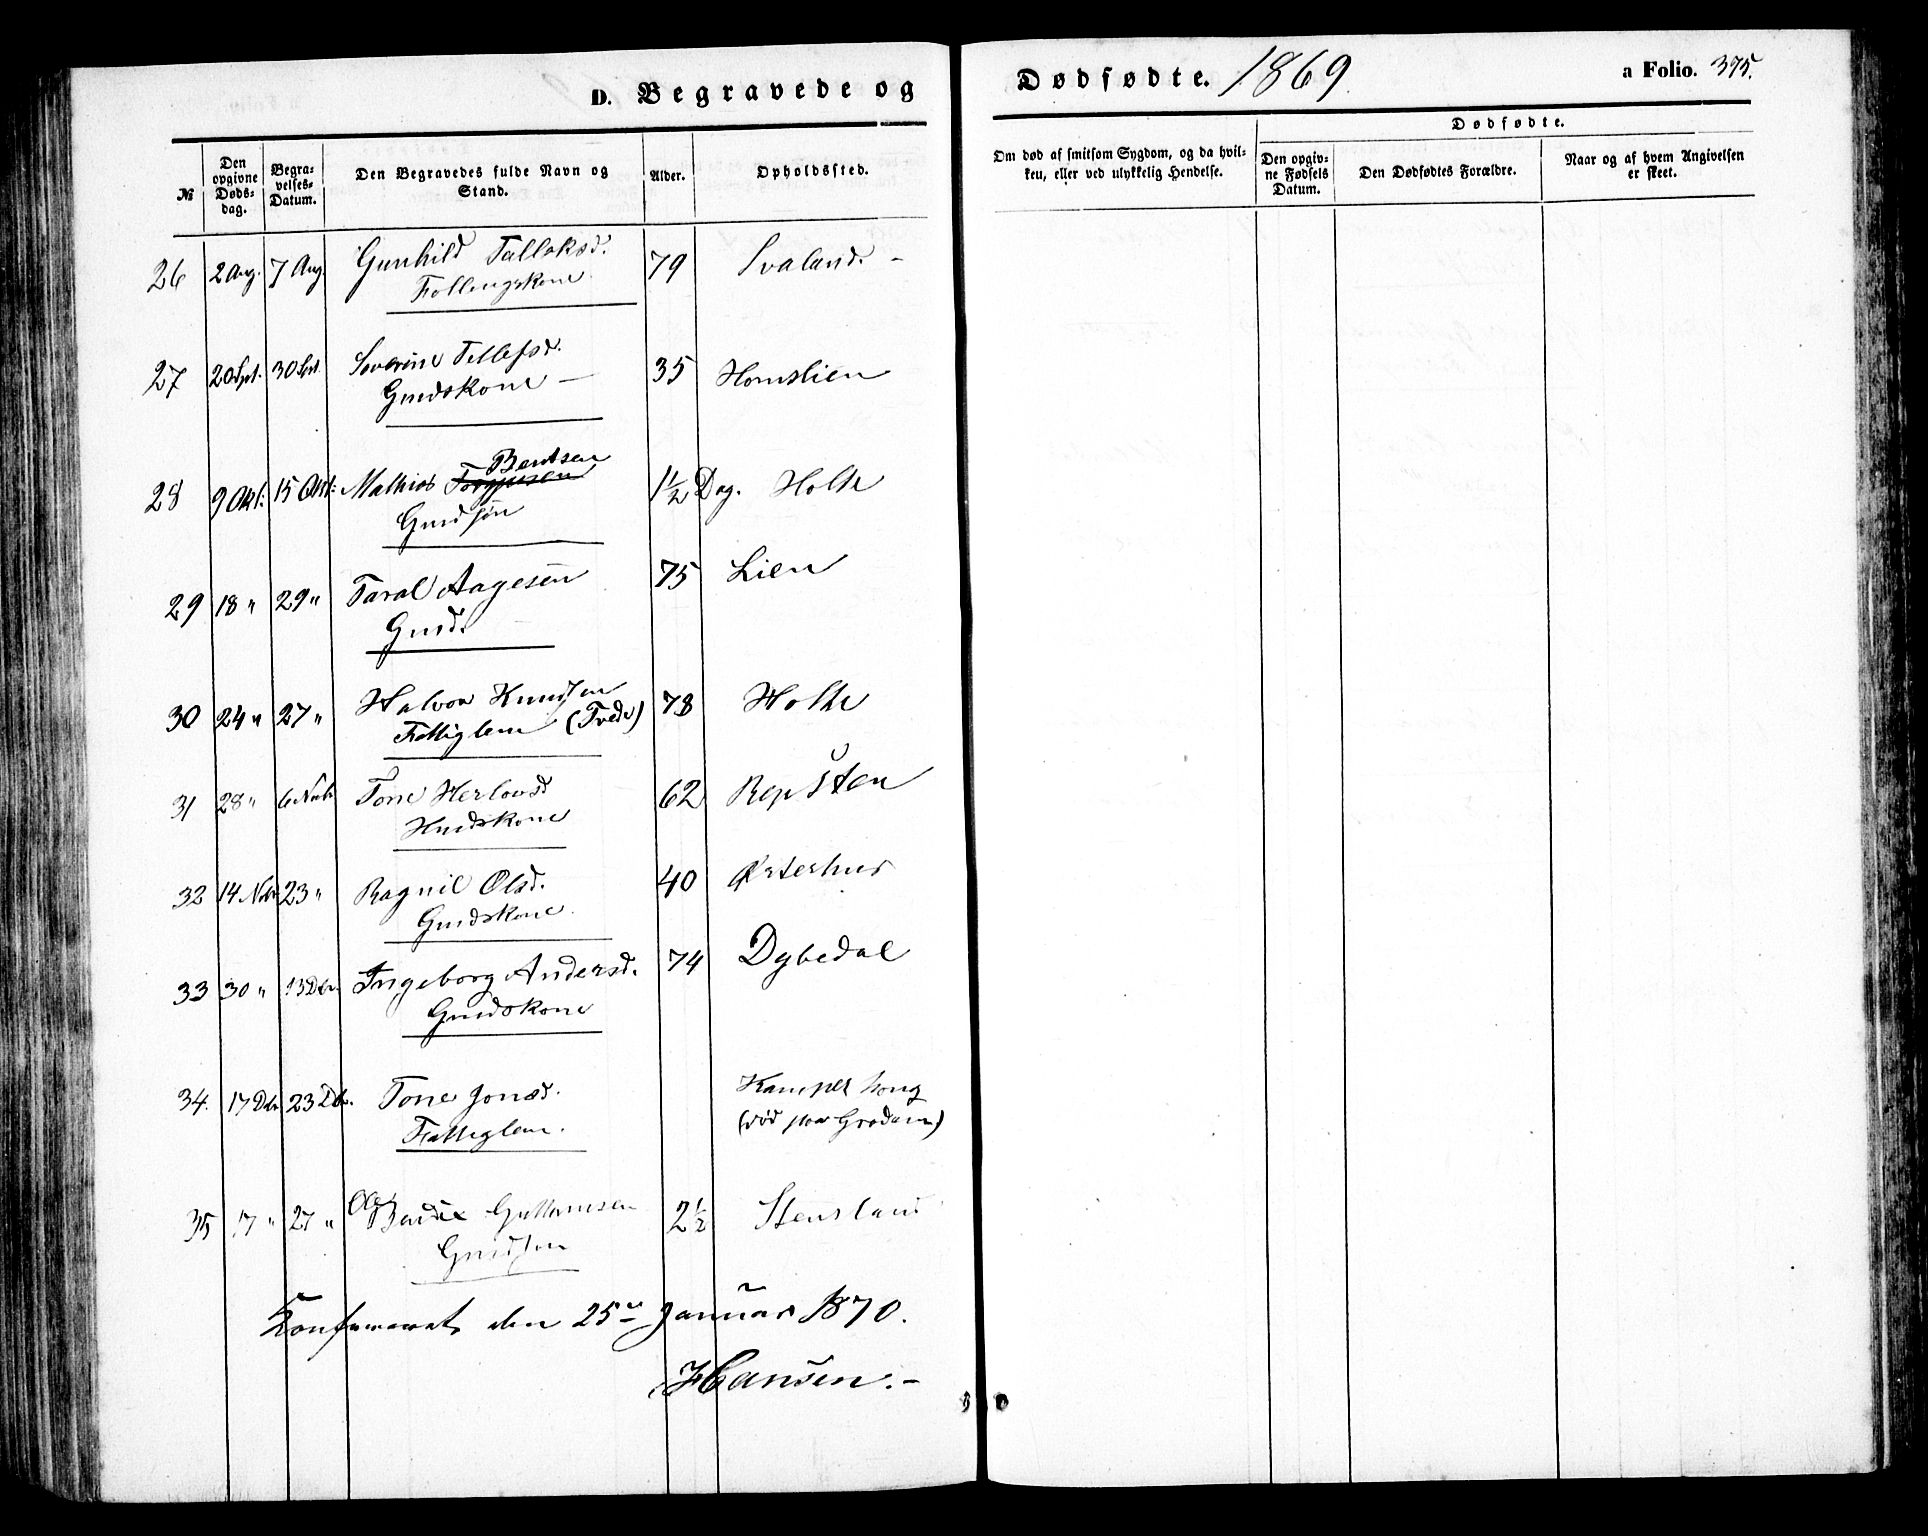 D. Begravede og Dødfødte. 1869. a Folio. 375.
№ Den opgivne Døds-dag. Begra-velses-Datum. Den Begravedes fulde Navn og Stand. Alder. Opholdssted. Om død af smitsom Sygdom, og da hvil-ken, eller ved ulykkelig Hendelse. Dødfødte. Den opgiv-ne Fødsels Datum. Den Dødfødtes Forældre. Naar og af hvem Angivelsen er skeet.
26 2 Aug. 7 Aug. Gunhild Tallaksd. 79 Svaland. -
27 20 Spt. 30 Spt. Severine Tellefsd. 35 Homslien
Gmdskone -
Bentsen
28 9 Okt: 15 Okt: Mathias 1½ Dag. Holte
Gmdsøn
29 18 " 29 " Taral Aagesen 75 Lien
Gmd.
30 24 " 27 " Halvor Knudsen 78 Holte
Fattiglem (Tvede)
31 28 " 6 Novbr Tone Herlovsd 62 Repsten
Hmdskone
32 14 Novbr 23 " Ragnil Olsd. 40 Østerhus
Gmdskone.
33 30 " 13 Dbr. Ingeborg Andersd. 74 Dybedal
Gmdskone
34. 17 Dbr 23 Dbr. Tone Jonsd. Kamperhoug
Fattiglem. (død paa Grodum)
35 17 " 27 " Ole Guttormsen 2½ Stensland
Gmdsøn
Confereret den 25de Januar 1870.
JHansen. -